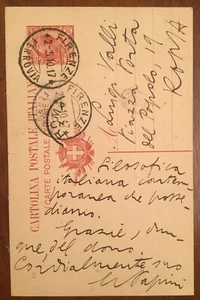 CARTOLINA POSTALE ITALIANA
CARTE POSTALE
FIRENZE
FERROVIA
FIRENZE
Luigi Valli
Piazza
del Popolo, 19
ROMA
filosofica
italiana contem-
poranea che posse-
diamo.
Grazie, dun-
que, del dono.
Cordialmente suo
Papini